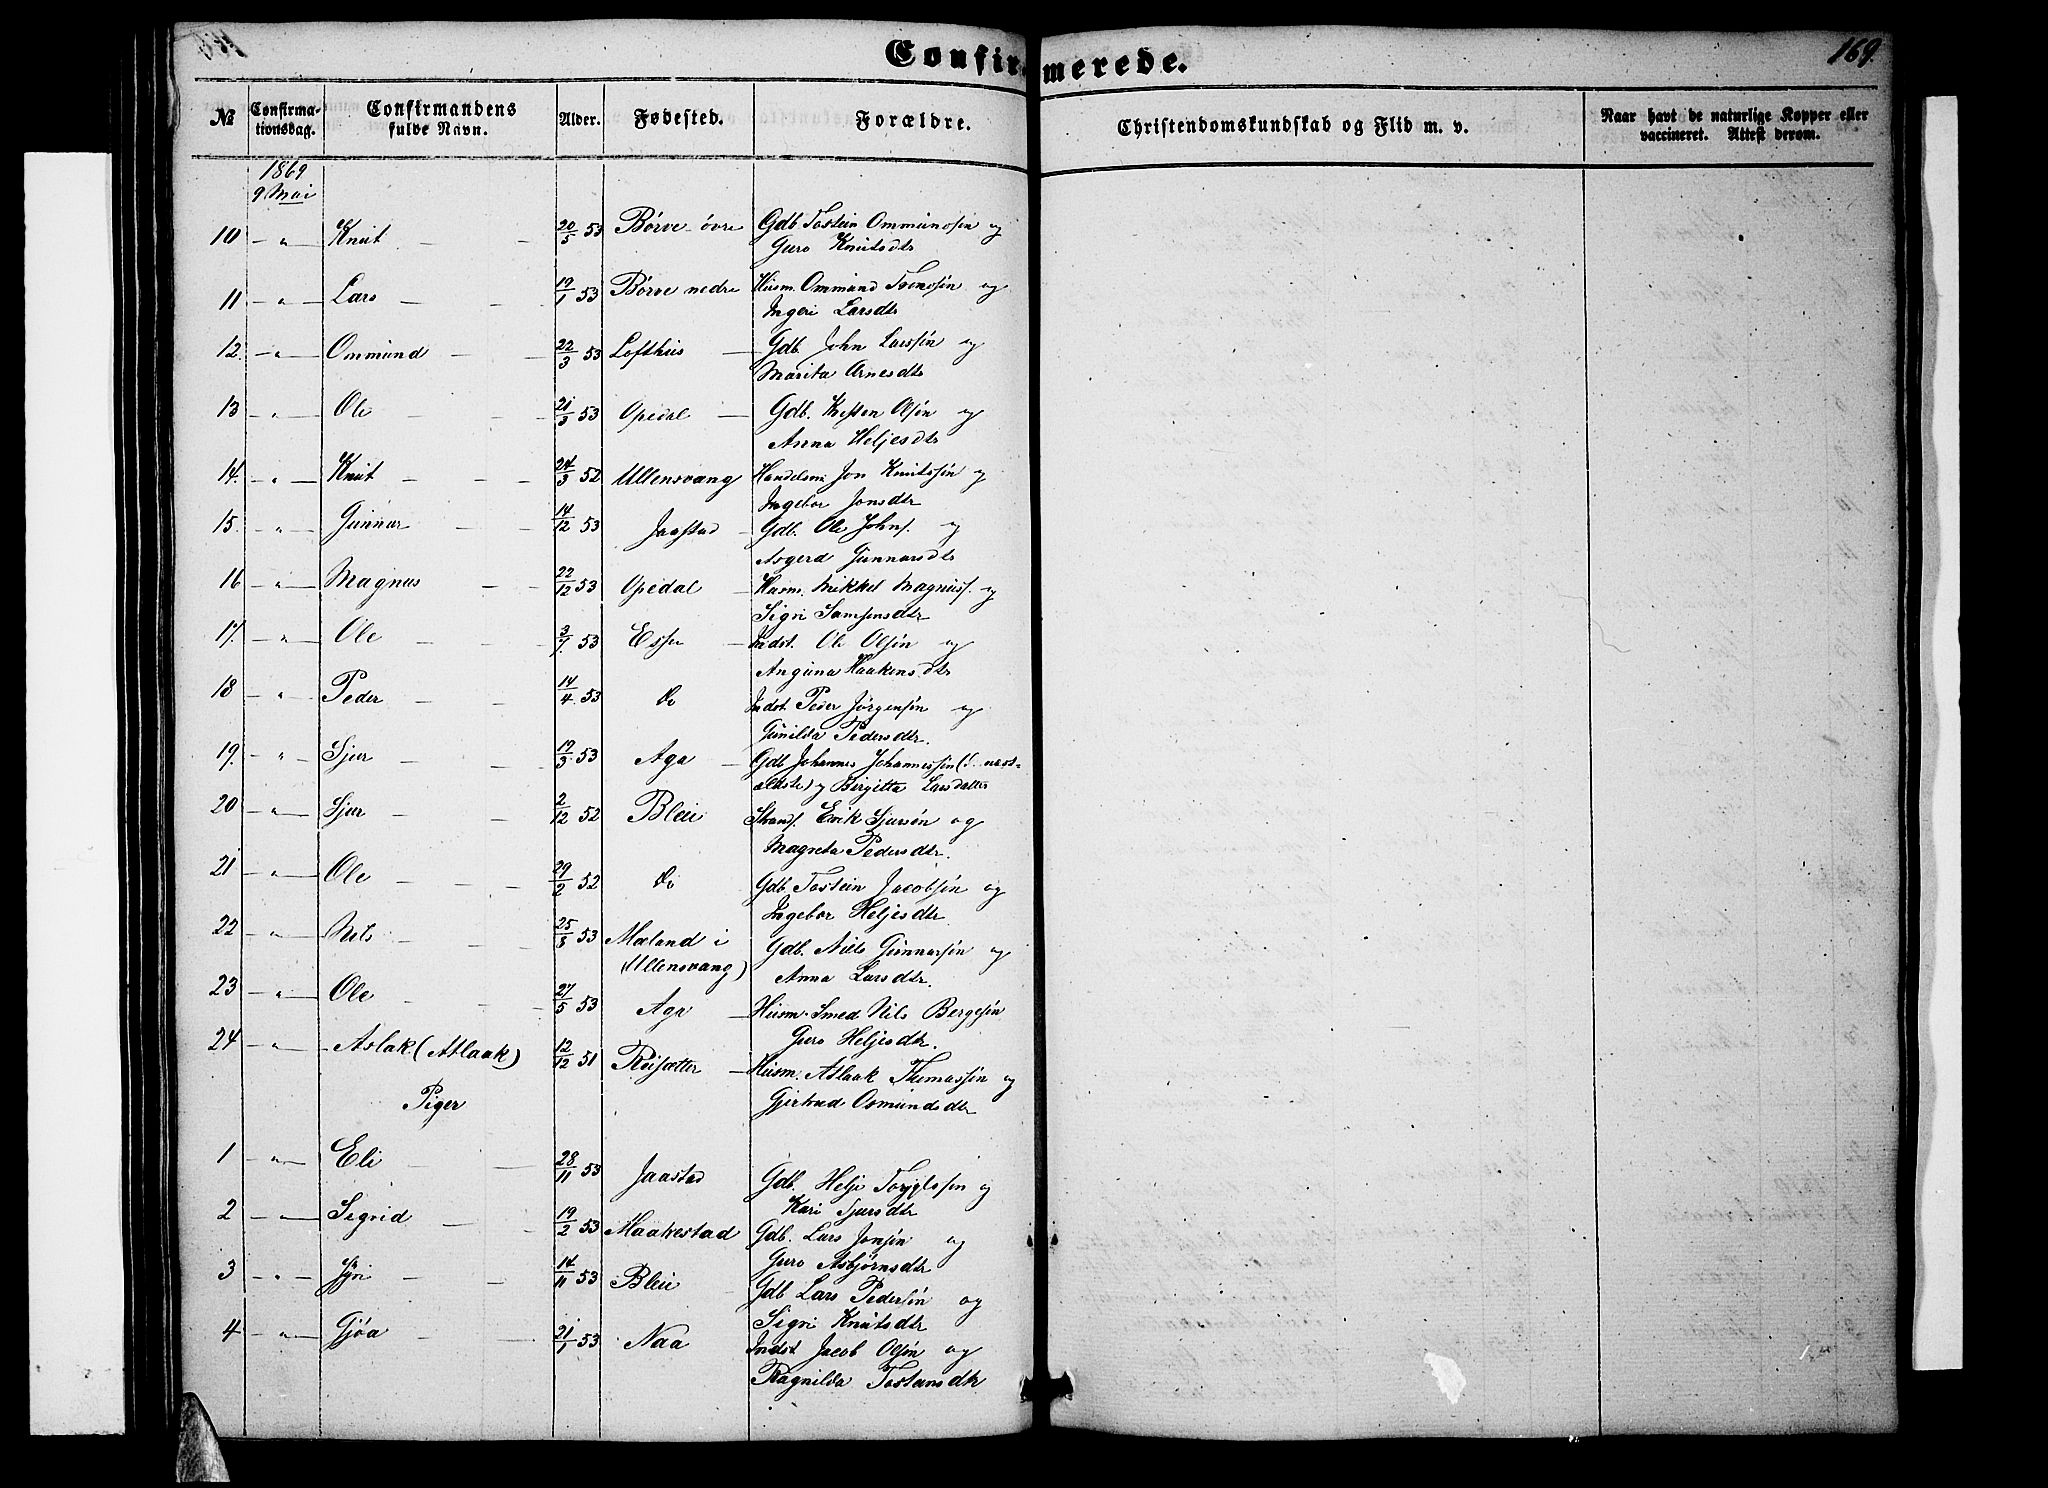 Confirmerede.
169.
№ Confirmationsdag. Confirmandens fulde Navn. Alder. Fødested. Forældre. Christendomskundskab og Flid m. v. Naar havt de naturlige Kopper eller vaccineret. Attest derom.
1869
9 Mai
10 — " — Knut — 20/5 53 Børve øvre Gdb. Tostein Ommundsøn og
Guro Knutsdtr
11 — " — Lars — 19/1 53 Børve nedre Husm. Ommund Svendsøn og
Ingeri Larsdtr
12. — " — Ommund — 22/3 53 Lofthus — Gdb. John Larssøn og
Marita Arnesdtr
13 — " — Ole — 21/3 53 Opedal — Gdb. Olsøn og
Anna Heljesdtr
14. — " — Knut — 24/3 52 Ullensvang Handelsm. Jon Knutssøn og
Ingebor Jonsdtr
15. — " — Gunnar — 14/12 53 Jaastad — Gdb. Ole Johns. og
Asgerd Gunnarsdtr
16 — " — Magnus — 22/12 53 Opedal — Husm. Mikkel Magnuss. og
Sigri Samsonsdtr
17. — " — Ole — 3/7 53 Espe — Indst. Ole Olsøn og
Anguna Haakensdtr
18 — " — Peder — 14/4 53 Do Indst. Peder Jørgensøn og
Gunilda Pedersdtr.
19. — " — Sjur — 19/3 53 Aga — Gdb Johannes Johannessøn ( næst-
ældste) og Birgitta Larsdatter
20 — " — Sjur — 2/12 52 Bleie Strands. Erik Sjursøn og
Magreta Pedersdtr.
21 — " — Ole — 29/2 52 Do Gdb. Tostein Jacobsøn og
Ingebor Heljesdtr
22 — " — Nils — 25/8 53 Mæland i Gdb. Nils Gunnarsøn og
(Ullensvang) Anna Larsdtr.
23 — " — Ole — 27/5 53 Aga — Husm. Smed Nils Bergesøn
Guro Heljesdtr.
24 — " — Aslak (Atlaak) 12/12 51 Røisætter — Husm. Atlaak Thomassøn og
Piger Gjertrud Osmundsdtr
1 — " — Eli — 28/11 53 Jaastad Gdb. Helje Torgilssøn og
Kari Sjursdtr
2 — " — Sigrid — 19/2 53 Maakestad Gdb. Lars Jonsøn og
Guro Asbjørnsdtr
3 — " — Syri — 14/11 53 Bleie Gdb Lars Pedersøn og
Sigri Knutsdtr
4 — " — Gjøa — 21/1 53 Naa Indst. Jacob Olsøn og
Ragnilda Tosteinsdtr